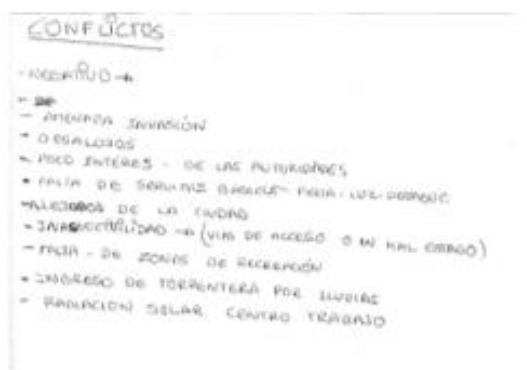 CONFLICTOS
- 
- AMENAZA INVASIÓN
- DESALOJOS
- POCO INTERES - DE LAS AUTORIDADES
- FALTA DE BASICOS - LUZ -
- ALEJADOS DE LA CIUDAD
- INACCECIBILIDAD → (VIAS DE ACCESO O EN MAL ESTADO)
- FALTA - DE ZONAS DE RECREACIÓN
- INGRESO DE TORRENTERA POR LLUVIAS
- RADIACION SOLAR CENTRO TRABAJO